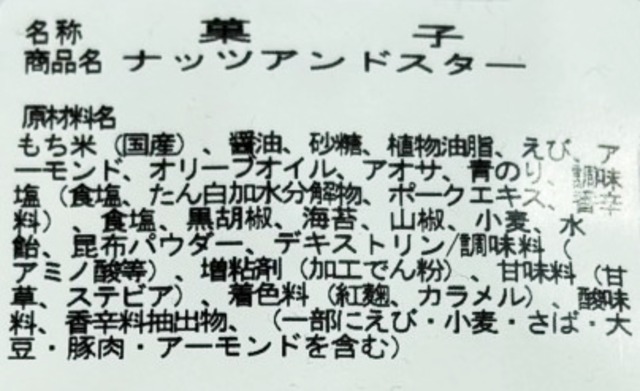 名称 菓子
商品名 ナッツアンドスター
原材料名
もち米（国産）、醤油、砂糖、植物油脂、えび、ア
ーモンド、オリーブオイル、アオサ、青のり、調味
塩（食塩、たん白加水分解物、ポークエキス、香辛
料）、食塩、黒胡椒、海苔、山椒、小麦、水
飴、昆布パウダー、デキストリン/調味料（
アミノ酸等）、増粘剤（加工でん粉）、甘味料（甘
草、ステビア）、着色料（紅麹、カラメル）、酸味
料、香辛料抽出物、（一部にえび・小麦・さば・大
豆・豚肉・アーモンドを含む）